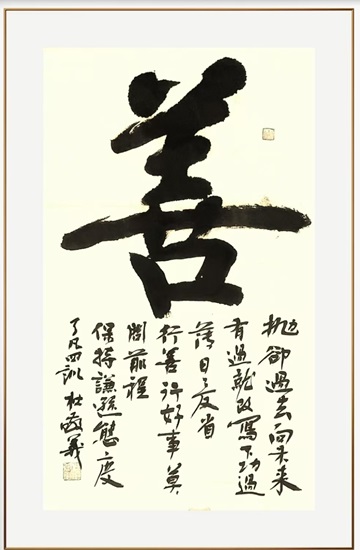 善
拋卻過去向未來
有過就改寫下功過
簿日日反省
行善行好事莫
問前程
保持謙遜態度
了凡四訓 杜敬義